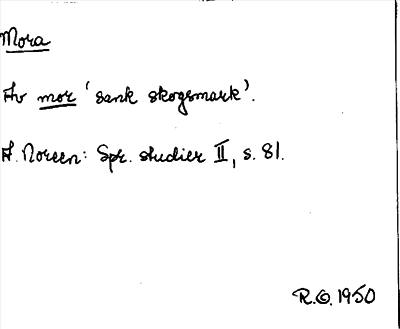 Mora
Av mor 'sank skogsmark'.
A. Noreen: Spr. studier II, s. 81.
R.O. 1950